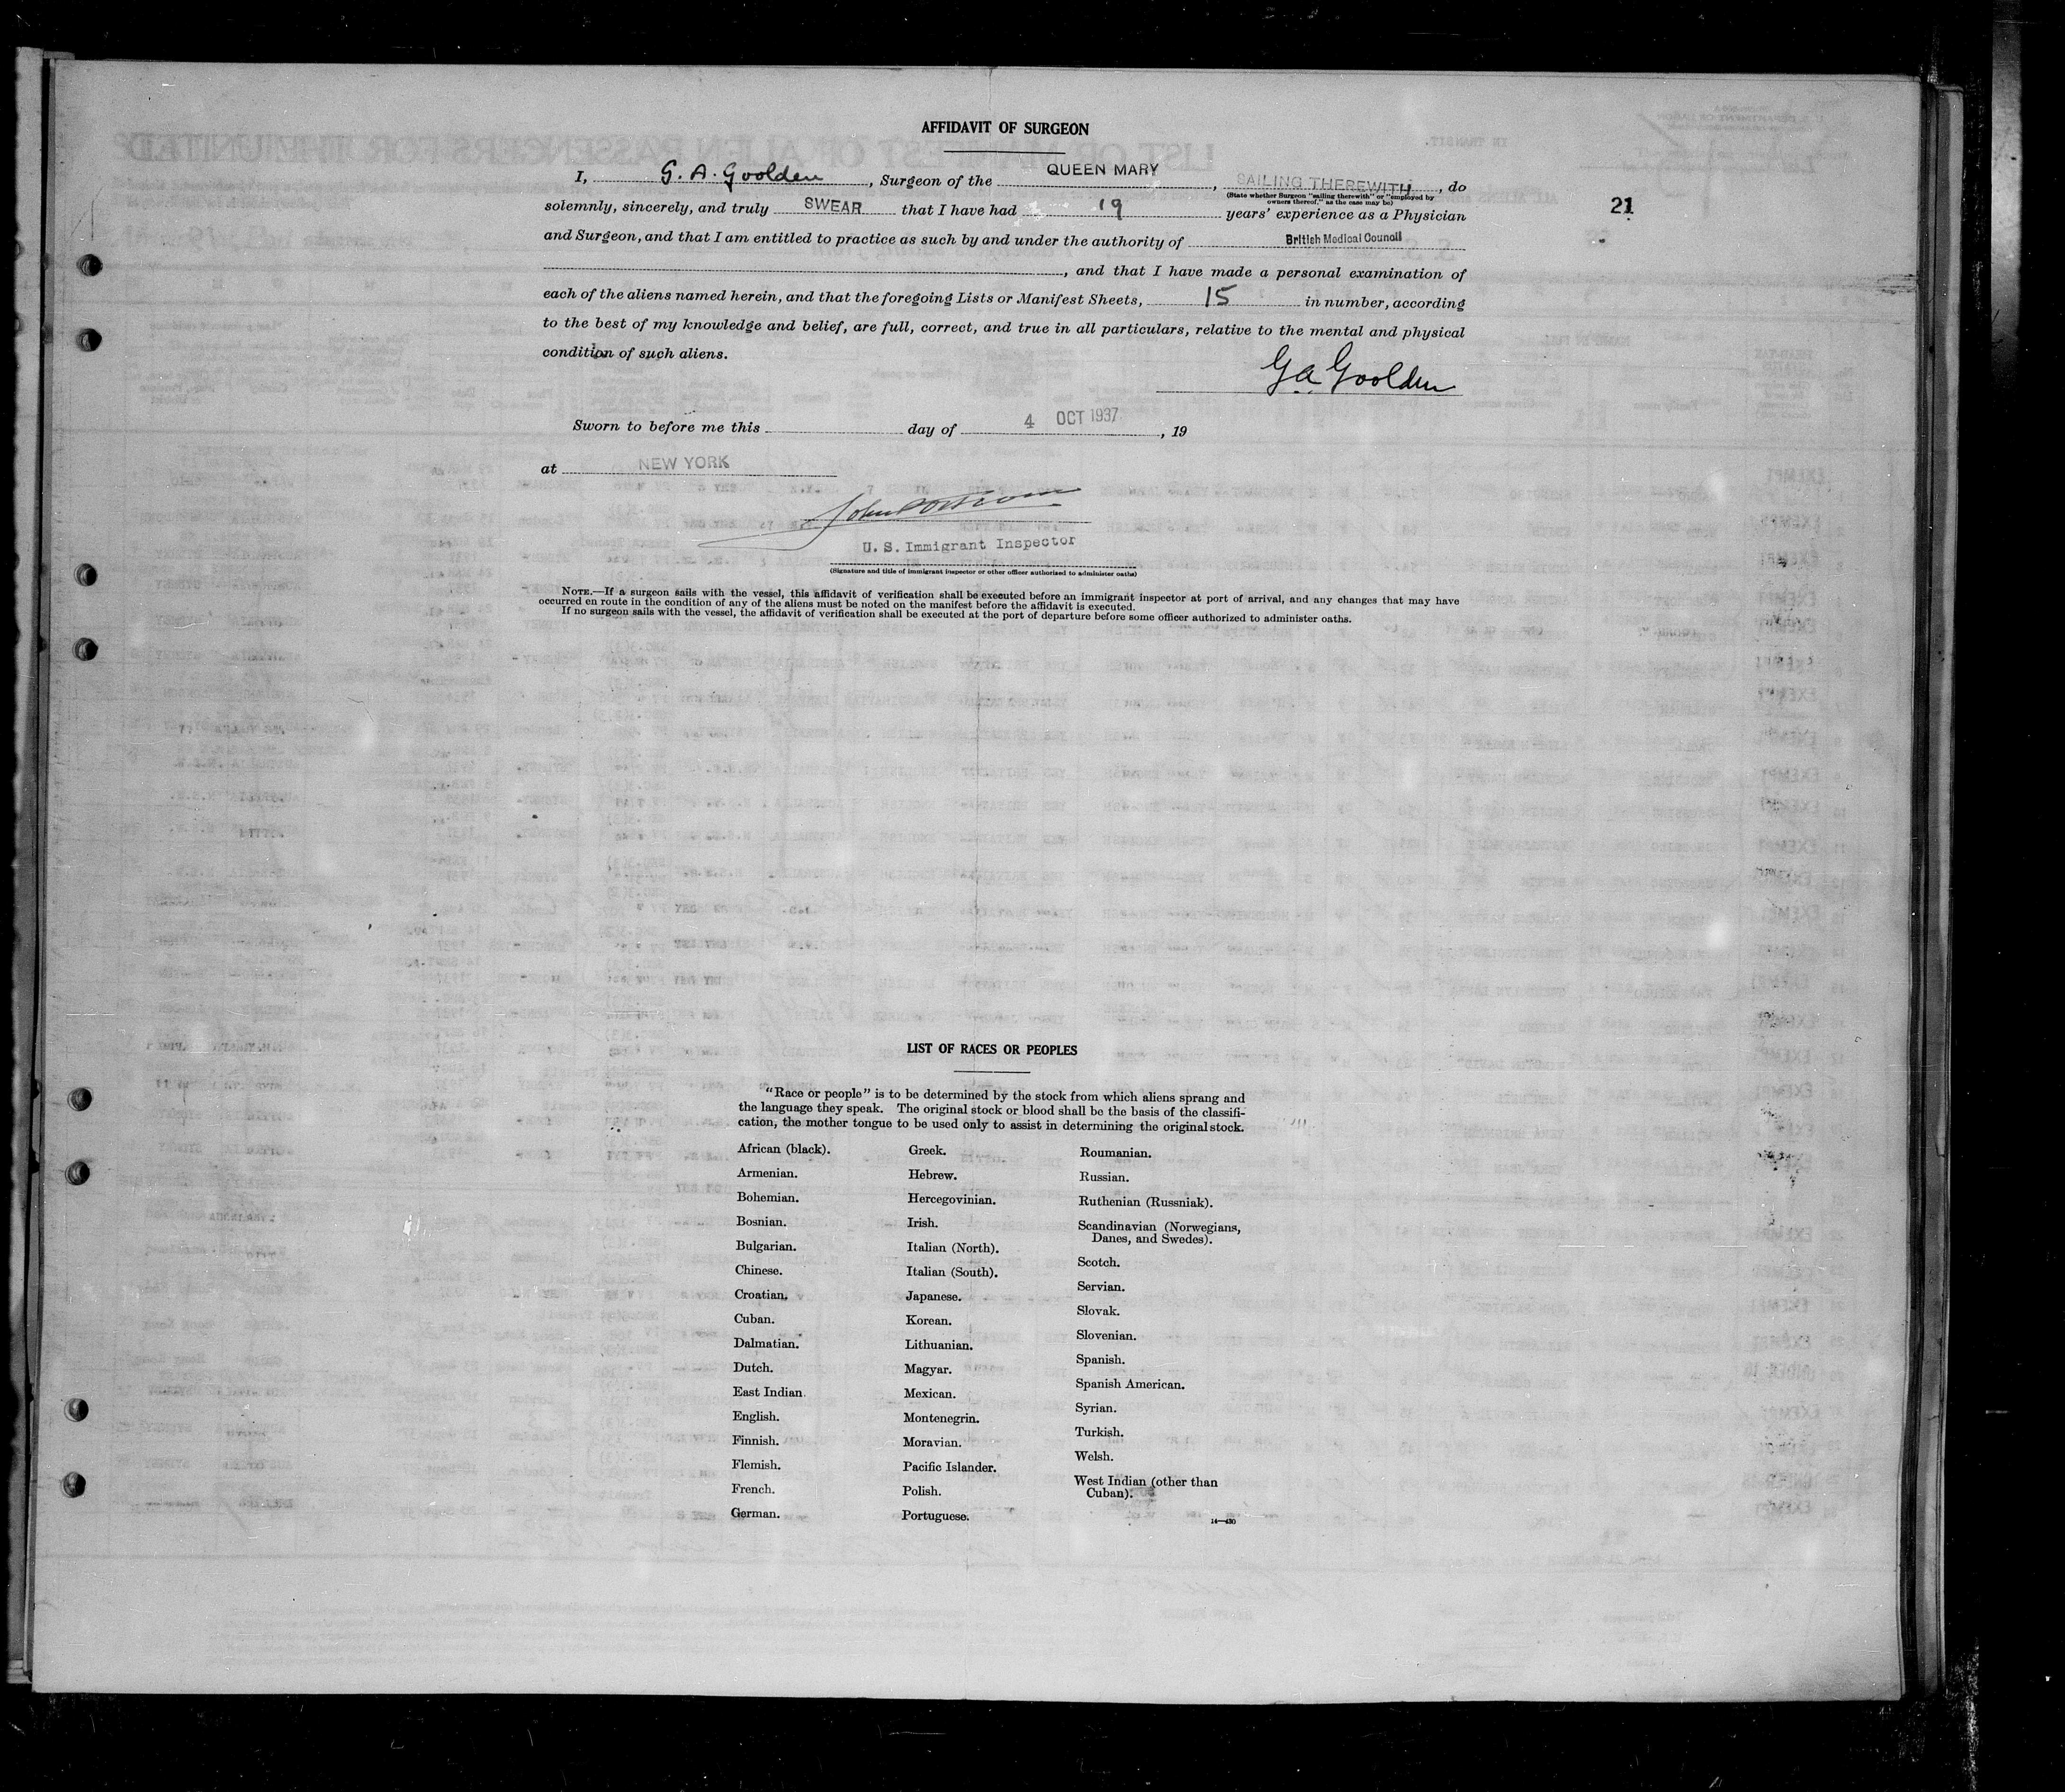 AFFIDAVIT OF SURGEON
I, G. A. Goolden, Surgeon of the QUEEN MARY, SAILING THEREWITH, do
(State whether Surgeon "sailing therewith" or "employed by
owners thereof," as the case may be)
21
solemnly, sincerely, and truly SWEAR that I have had 19 years' experience as a Physician
and Surgeon, and that I am entitled to practice as such by and under the authority of British Medical Council
, and that I have made a personal examination of
each of the aliens named herein, and that the foregoing Lists or Manifest Sheets, 15 in number, according
to the best of my knowledge and belief, are full, correct, and true in all particulars, relative to the mental and physical
condition of such aliens.
G A Goolden
Sworn to before me this day of 4 OCT 1937, 19
at NEW YORK
John
U. S. Immigrant Inspector
(Signature and title of immigrant inspector or other officer authorized to administer oaths)
NOTE.—If a surgeon sails with the vessel, this affidavit of verification shall be executed before an immigrant inspector at port of arrival, and any changes that may have
occurred en route in the condition of any of the aliens must be noted on the manifest before the affidavit is executed.
If no surgeon sails with the vessel, the affidavit of verification shall be executed at the port of departure before some officer authorized to administer oaths.
LIST OF RACES OR PEOPLES
"Race or people" is to be determined by the stock from which aliens sprang and
the language they speak. The original stock or blood shall be the basis of the classifi-
cation, the mother tongue to be used only to assist in determining the original stock.
African (black).
Armenian.
Bohemian.
Bosnian.
Bulgarian.
Chinese.
Croatian.
Cuban.
Dalmatian.
Dutch.
East Indian.
English.
Finnish.
Flemish.
French.
German.
Greek.
Hebrew.
Hercegovinian.
Irish.
Italian (North).
Italian (South).
Japanese.
Korean.
Lithuanian.
Magyar.
Mexican.
Montenegrin.
Moravian.
Pacific Islander.
Polish.
Portuguese.
Roumanian.
Russian.
Ruthenian (Russniak).
Scandinavian (Norwegians,
Danes, and Swedes).
Scotch.
Servian.
Slovak.
Slovenian.
Spanish.
Spanish American.
Syrian.
Turkish.
Welsh.
West Indian (other than
Cuban).
14—430